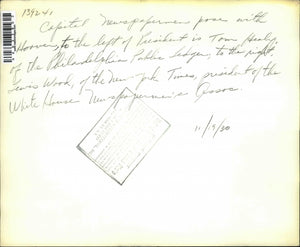 13924
Capitol Newspapermen pose with
Hoover, to the left of President is Tom Healy,
of the Philadelphia Public Ledger, to the right,
Lewis Wood, of the New York Times, president of the
White House Newspapermen's Assoc.
11/13/30